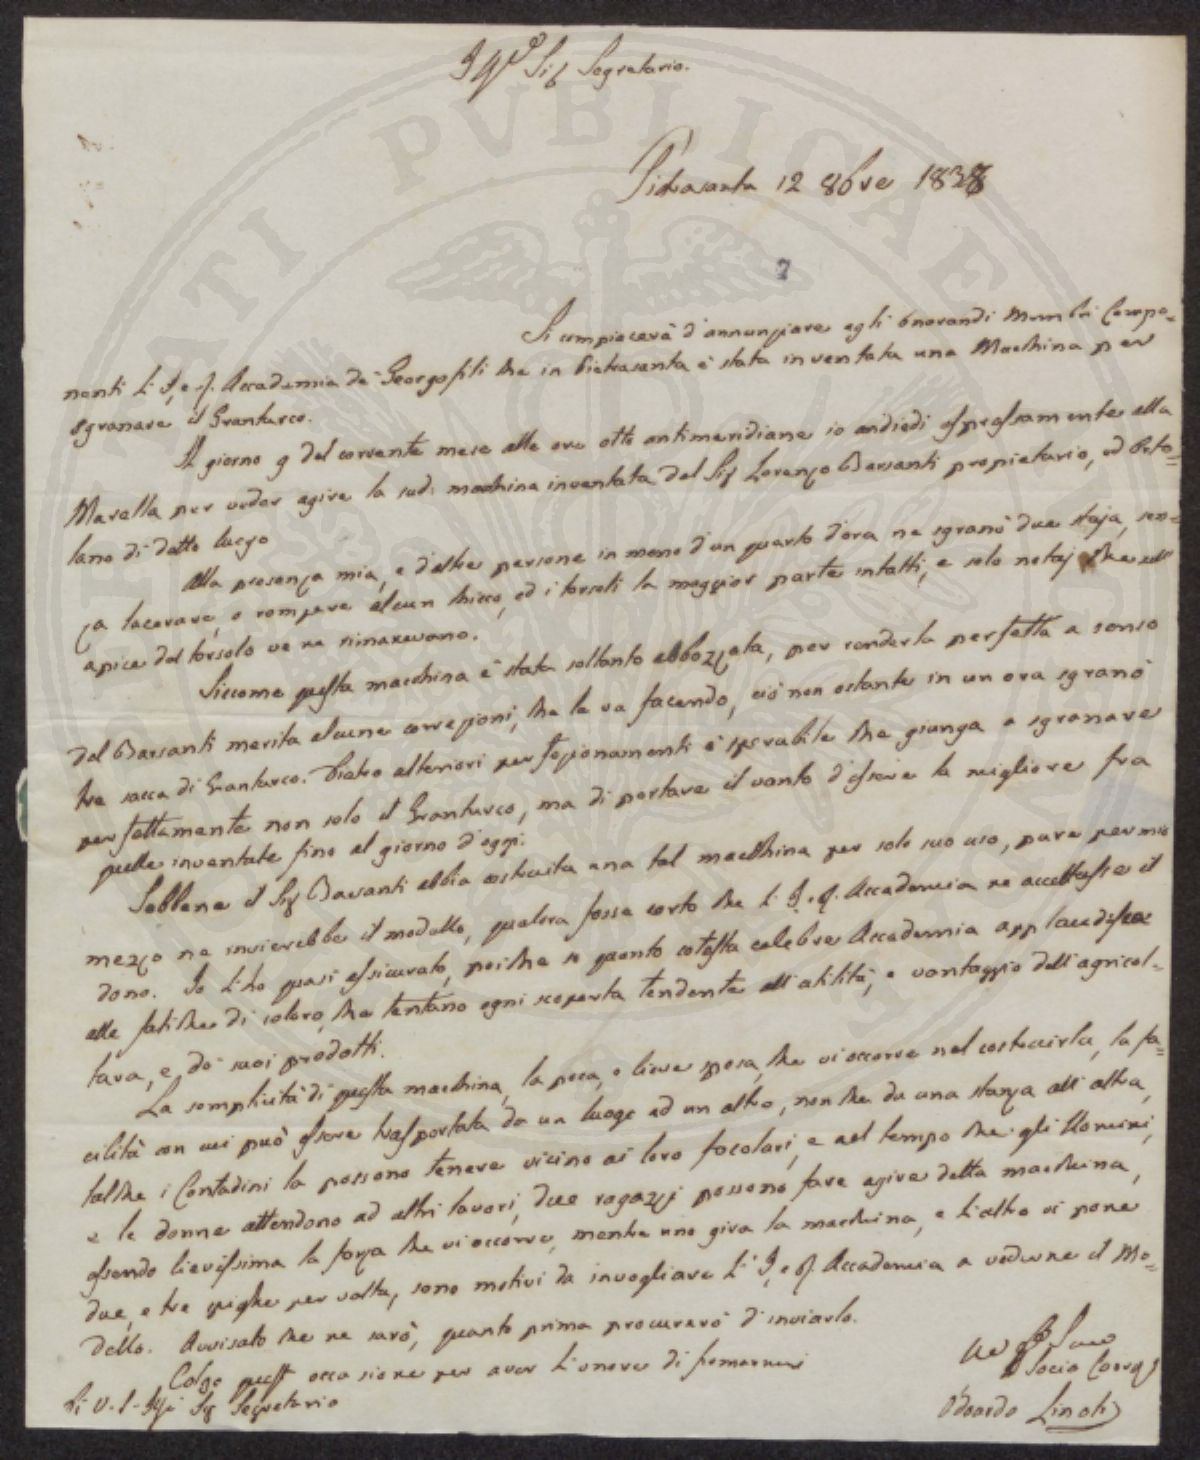 Sig Segretario.
Pietrasanta 12 8bre 1838
7
Si compiacerà d'annunziare agli onorandi Membri Compo=
nenti L'I. e R. Accademia de' Georgofili che in Pietrasanta è stata inventata una Macchina per
sgranare il Granturco.
Il giorno 9 del corrente mese alle ore otto antimeridiane io andiedi espressamente alla
Marella per veder agire la sud: macchina inventata dal Sig Lorenzo Barsanti propietario, ed Orto=
lano di detto luogo
Alla presenza mia, e d'altre persone in meno d'un quarto d'ora ne sgranò due staja, sen=
za lacerare, o rompere alcun chicco, ed i torsoli la maggior parte intatti, e solo notaj che all'
apice del torsolo ve ne rimanevano.
Siccome questa macchina è stata soltanto abbozzata, per renderla perfetta a senso
del Barsanti merita alcune correzioni, che le va facendo, ciò non ostante in un ora sgranò
tre sacca di Granturco. Dietro ulteriori perfezionamenti è sperabile che giunga a sgranare
perfettamente non solo il Granturco, ma di portare il vanto d'essere la migliore fra
quelle inventate fino al giorno d'oggi.
Sebbene il Sig Barsanti abbia costruita una tal macchina per solo suo uso, pure per mio
mezzo ne invierebbe il modello, qualora fosse certo che L'I. e R. Accademia ne accettasse il
dono. Io l'ho quasi assicurato, poichè so quanto cotesta celebre Accademia applaudisce
alle fatiche di coloro, che tentano ogni scoperta tendente all'utilità, e vantaggio dell'agricol=
tura, e de' suoi prodotti.
La semplicità di questa macchina, la poca, o lieve spesa, che vi occorre nel costruirla, la fa=
cilità con cui può essere trasportata da un luogo ad un altro, non che da una stanza all'altra,
talchè i Contadini la possono tenere vicino ai loro focolari, e nel tempo che gli Uomini,
e le donne attendono ad altri lavori, due ragazzi possono fare agire detta macchina,
essendo lievissima la forza che vi occorre, mentre uno gira la macchina, e l'altro vi pone
due, o tre pighe per volta, sono motivi da invogliare L'I. e R. Accademia a vederne il Mo=
dello. Avvisato che ne sarò, quanto prima procurerò d'inviarlo.
Colgo quest' occasione per aver l'onore di firmarmi
Di V. S. Sig Segretario
Socio Corrisp
Odoardo Linoli
PVBLICAE